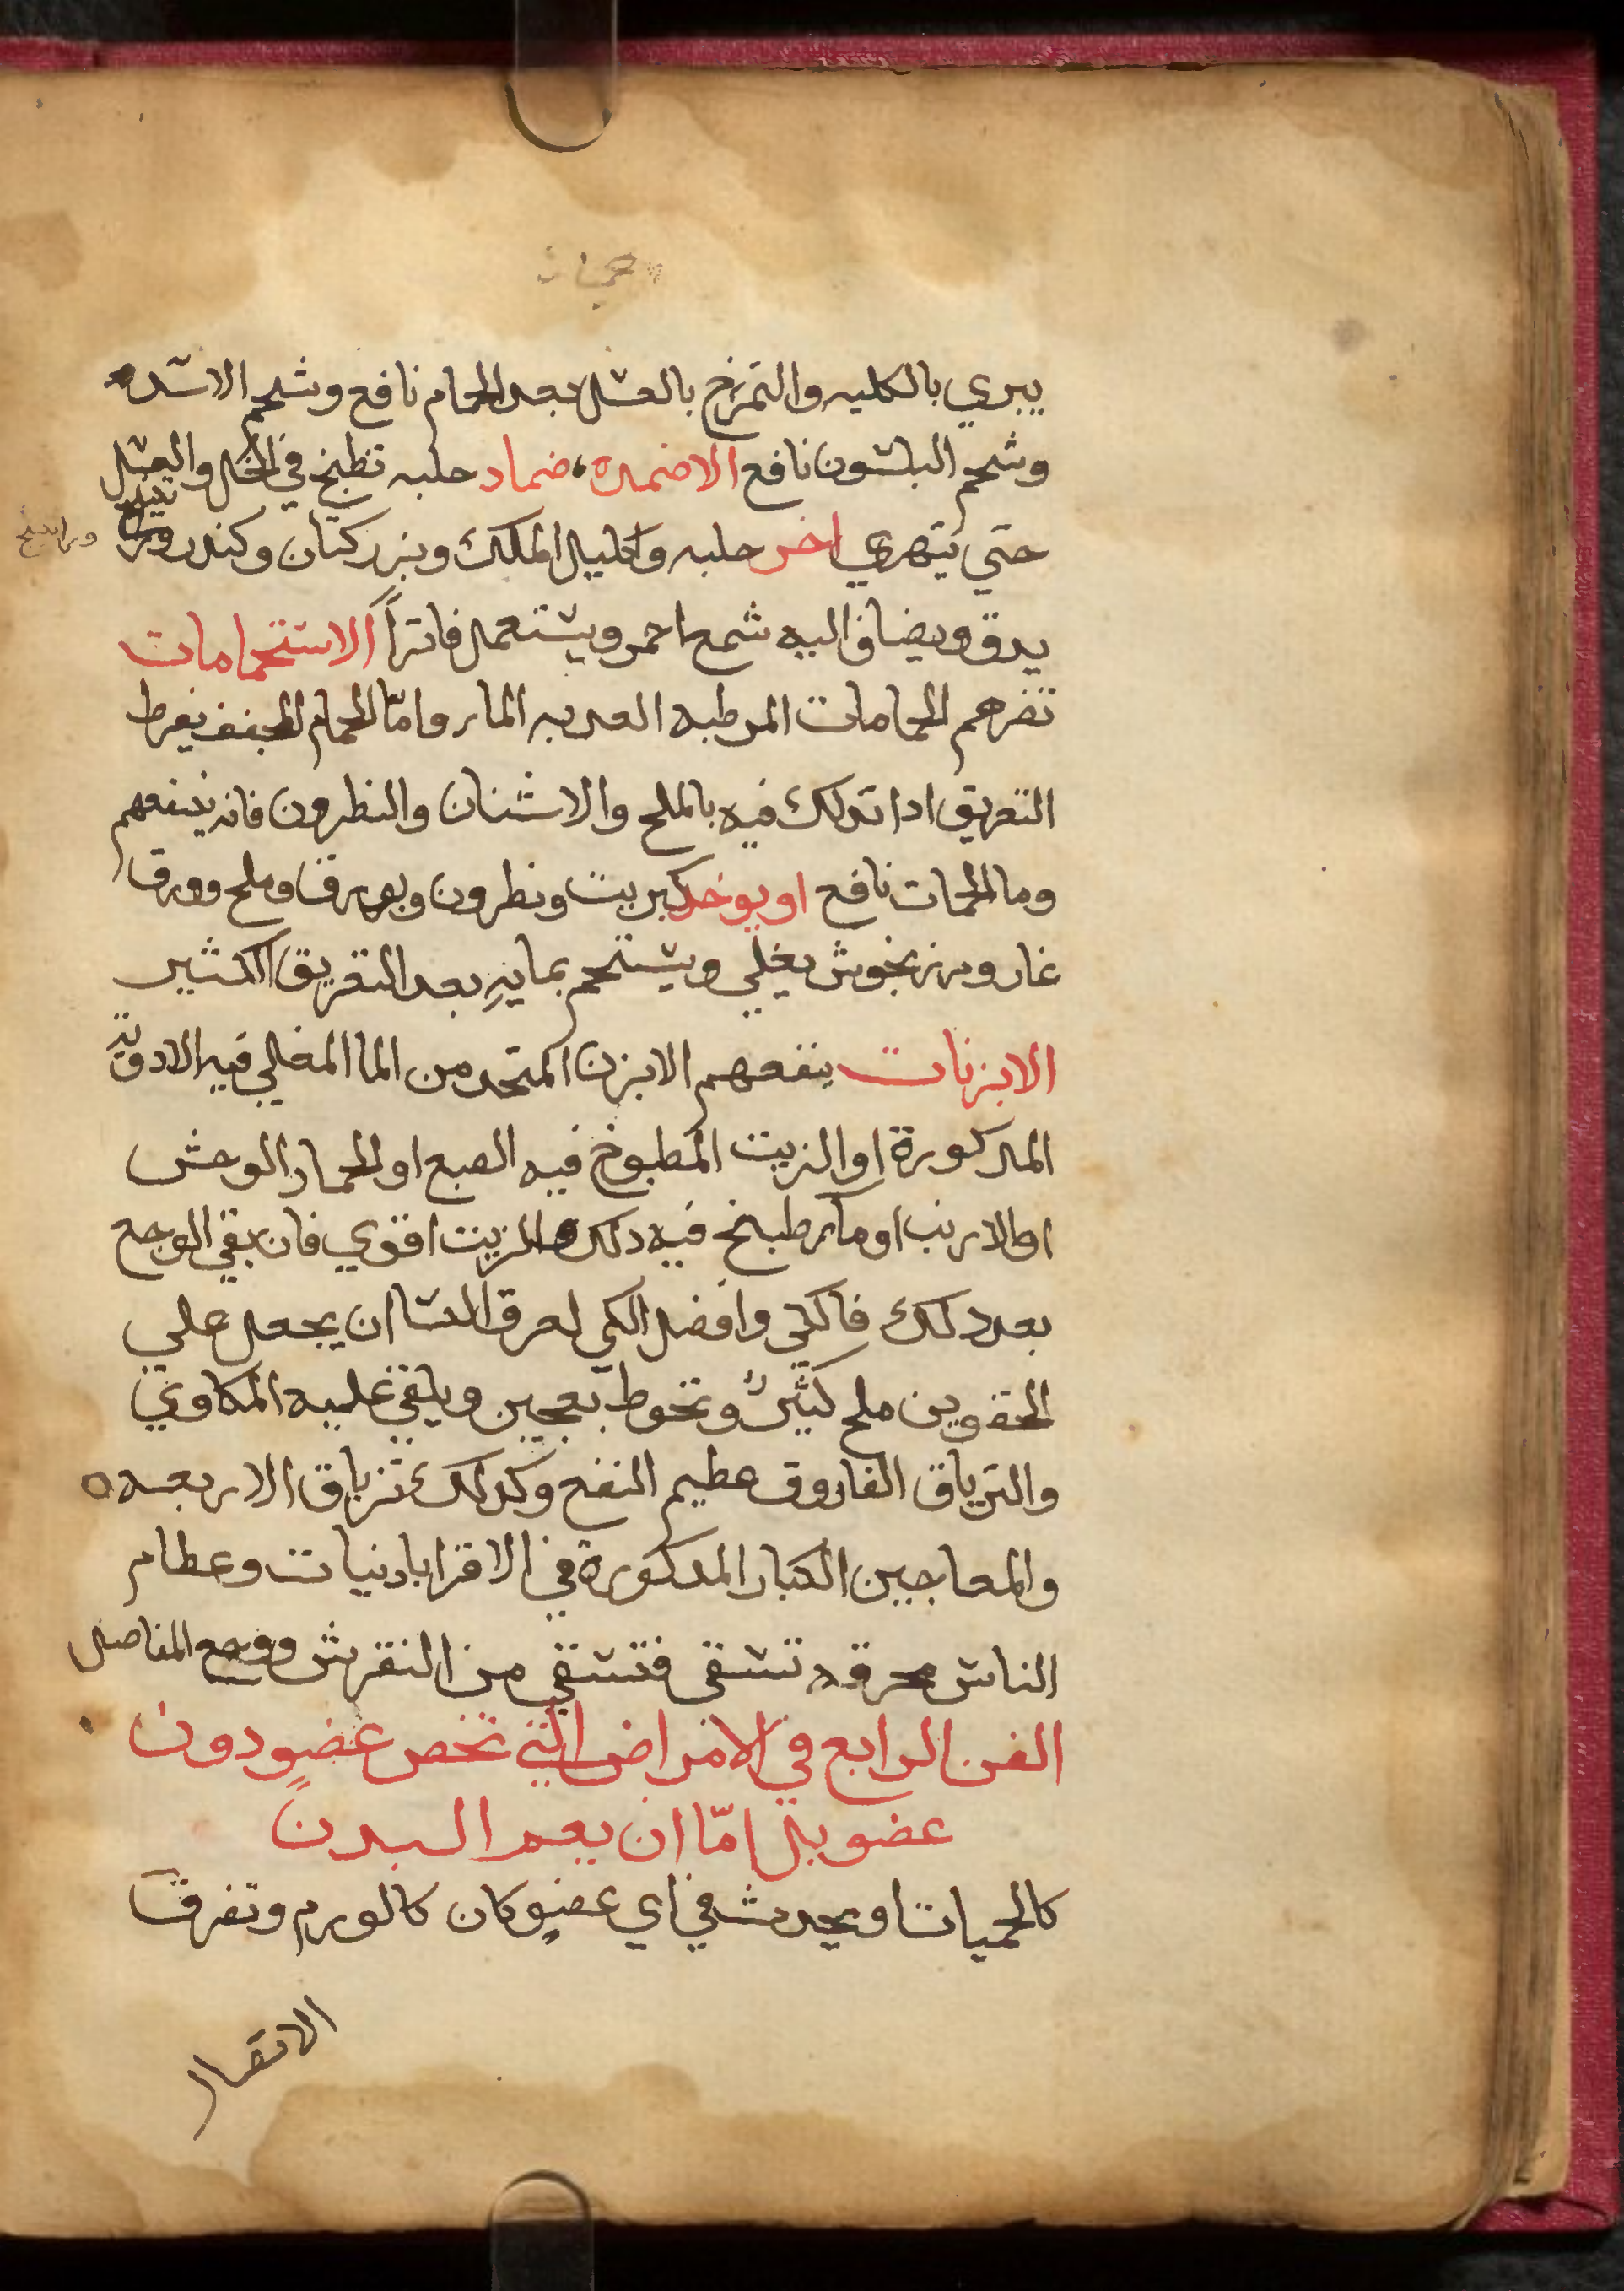 حميات
يبري بالكليه والتمرخ بالعسل بعد الحمام نافع وشحم الاسد
وشحم البلشون نافع الاضمده ضماد حلبه تطبخ في الخل والعسل
حتي يتهري اخر حلبه واكليل الملك وبزر كتان وكندر
وراتينج
يدق ويضاف اليه شمع احمر ويستعمل فاتراً الاستحمامات
تضرهم الحمامات المرطبه العدبه الماء واماّ الحمام المجفف بفرط
التعريق ادا تدلك فيه بالملح والاشنان والنطرون فانه ينفعهم
وما الحمات نافع او يوخد كبريت ونطرون وبورق وملح وورق
غار ومرزنجوش يغلي ويستحم بمايهِ بعد التعريق الكثير
الابزنات ينفعهم الابزن المتخد من الما المغلي فيه الادويه
المدكورة او الزيت المطبوخ فيه الضبع او الحمار الوحش
او الارنب او ماء طبخ فيه دلك والزيت اقوي فان بقي الوجع
بعد دلك فالكي وافضل الكي لعرق النسا ان يجعل علي
الحقوين ملح كثيرٌ وتحوط بعجين ويلقي عليه المكاوي
والترياق الفاروق عظيم النفع وكدلك ترياق الاربعه
والمعاجين الكبار المدكورة في الاقرابادنيات وعظام
الناس محرقه تسقى فتشفي من النقرس ووجع المفاصل
الفن الرابع في الامراض التي تخص عضوٍ دون
عضو بل امّا ان يعم البدن
كالحميات او يحدث في اي عضوٍ كان كالورم وتفرق
الاتصال